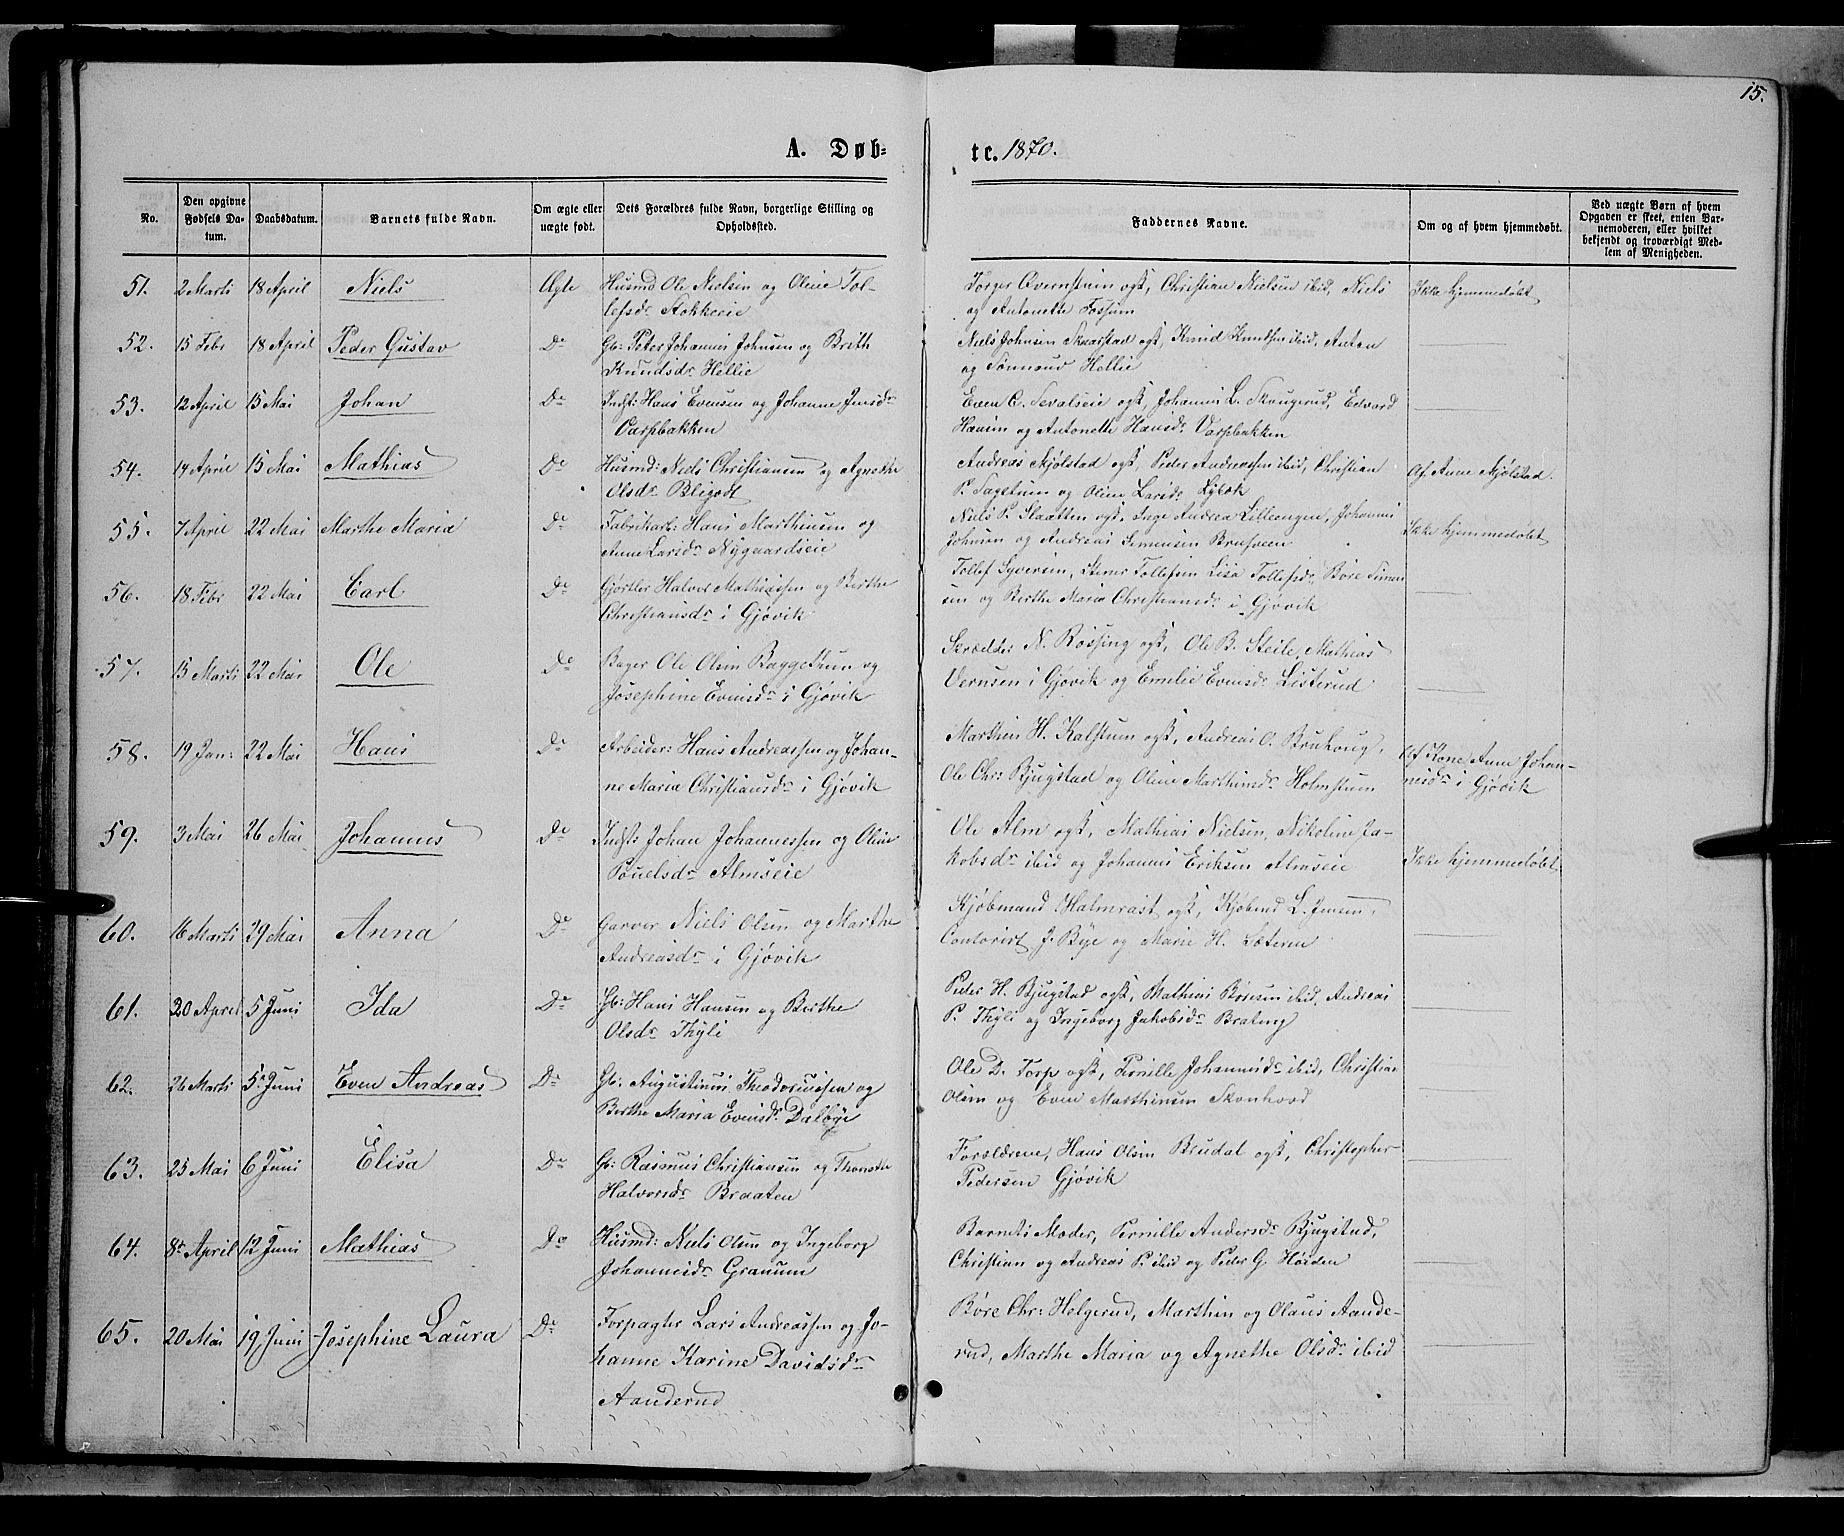 15.
A. Døb-
te. 1870.
No.
Den opgivne Fødsels Da-tum.
Daabsdatum.
Barnets fulde Navn.
Om ægte eller uægte født.
Dets Forældres fulde Navn, borgerlige Stilling og Opholdssted.
Faddernes Navne.
Om og af hvem hjemmedøbt.
Ved uægte Børn af hvem Opgaven er skeet, enten Bar-nemoderen, eller hvilket bekjendt og troværdigt Med-lem af Menigheden.
51. 2 Marts 18 April Niels Ægte Husmd Ole Nielsen og Oline Tol-
lefsdr Stokkeeie
Torger Overnstuin ogst, Christian Nielsen ibid, Niels
og Antonette Fossum
Ikke hjemmedøbt
52. 15 Febr 18 April Peder Gustav Do Gb: Peter Johannes Johnsen og Brith
Knudsdr Hellie
Niels Johnsen Skaarstad ogst, Knud Knudsen ibid, Anton
og Tønnsrud Hellie
53. 12 April 15 Mai Johan Do Indst: Hans Evensen og Johanne Jensdr
Varpbakken
Even C. Sevalseie ogst, Johannes L. Skougerud, Edvard
Hansen og Antonette Hansdr Varpbakken
54. 14 April 15 Mai Mathias Do Husmd: Niels Christiansen og Agnethe
Olsdr Bligodt
Andreas Mjølstad ogst, Peder Andreassen ibid, Christian
P. Sagetuen og Oline Larsdr Lybek
Af Anne Mjølstad.
55. 7 April 22 Mai Marthe Maria Do Fabrikarb: Hans Marthinsen og
Anne Larsdr Nygaardseie
Niels P. Slaatten ogst, Inge Andrea Lilleengen, Johannes
Johnsen og Andreas Simensen Brusveen
Ikke hjemmedøbt
56. 18 Febr 22 Mai Carl Do Gjørtler Halvor Mathiassen og Berthe
Christiansdr i Gjøvik
Tollef Syversen, Stener Tollefsen Lisa Tollefsdr, Børe Simen
sen og Berthe Maria Christiansdr i Gjøvik
57. 15 Marts 22 Mai Ole Do Bager Ole Olsen Baggetun og
Josephine Evensdr i Gjøvik
Skrædder N. Røssing ogst, Ole B. Steile, Mathias
Vernsen i Gjøvik og Emelie Evensdr Listerud
58. 19 Jan: 22 Mai Hans Do Arbeider: Hans Andreassen og Johan-
ne Maria Christiansdr i Gjøvik
Marthin H. Kalstuen ogst, Andreas O. Bruhoug,
Ole Chr: Bjugstad og Oline Marthinsdr Holmstuen
Af Kone Anne Johan-
nesdr i Gjøvik
59. 3 Mai 26 Mai Johannes Do Indst: Johan Johannessen og Oline
Pouelsdr Almseie
Ole Alm ogst, Mathias Nielsen, Nikoline Ja-
kobsdr ibid og Johannes Eriksen Almseie
Ikke hjemmedøbt
60. 16 Marts 29 Mai Anna Do Garver Niels Olsen og Marthe
Andreasdr i Gjøvik
Kjøbmand Halmrast ogst, Kjøbmd L. Jensen,
Contorist J. Bye og Marie H. Sæteren
61. 20 April 5 Juni Ida Do Gb: Hans Hansen og Berthe
Olsdr Thyli
Peder H. Bjugstad ogst, Mathias Børesen ibid, Andreas
P. Thyli og Ingeborg Jakobsdr Brateng
62. 26 Marts 5 Juni Even Andreas Do Gb: Augustinus Theodorussen og
Berthe Maria Evensdr Dalbye
Ole D. Torp ogst, Pernille Johannesdr ibid, Christian
Olsen og Even Marthinsen Skonhovd
63. 25 Mai 6 Juni Elisa Do Gb: Rasmus Christiansen og Thonette
Halvorsdr Braaten
Forældrene, Hans Olsen Brudal ogst, Christopher
Pedersen Gjøvik
64. 8 April 12 Juni Mathias Do Husmd: Niels Olsen og Ingeborg
Johannesdr Granum
Barnets Moder, Pernille Andersdr Bjugstad,
Christian og Andreas P. ibid og Peder G. Høiden
65. 20 Mai 19 Juni Josephine Laura Do Forpagter Lars Andreassen og Jo-
hanne Karine Davidsdr
Aanderud
Børe Chr: Helgerud, Marthin og Olaus Aande-
rud, Marthe Maria og Agnethe Olsdr ibid